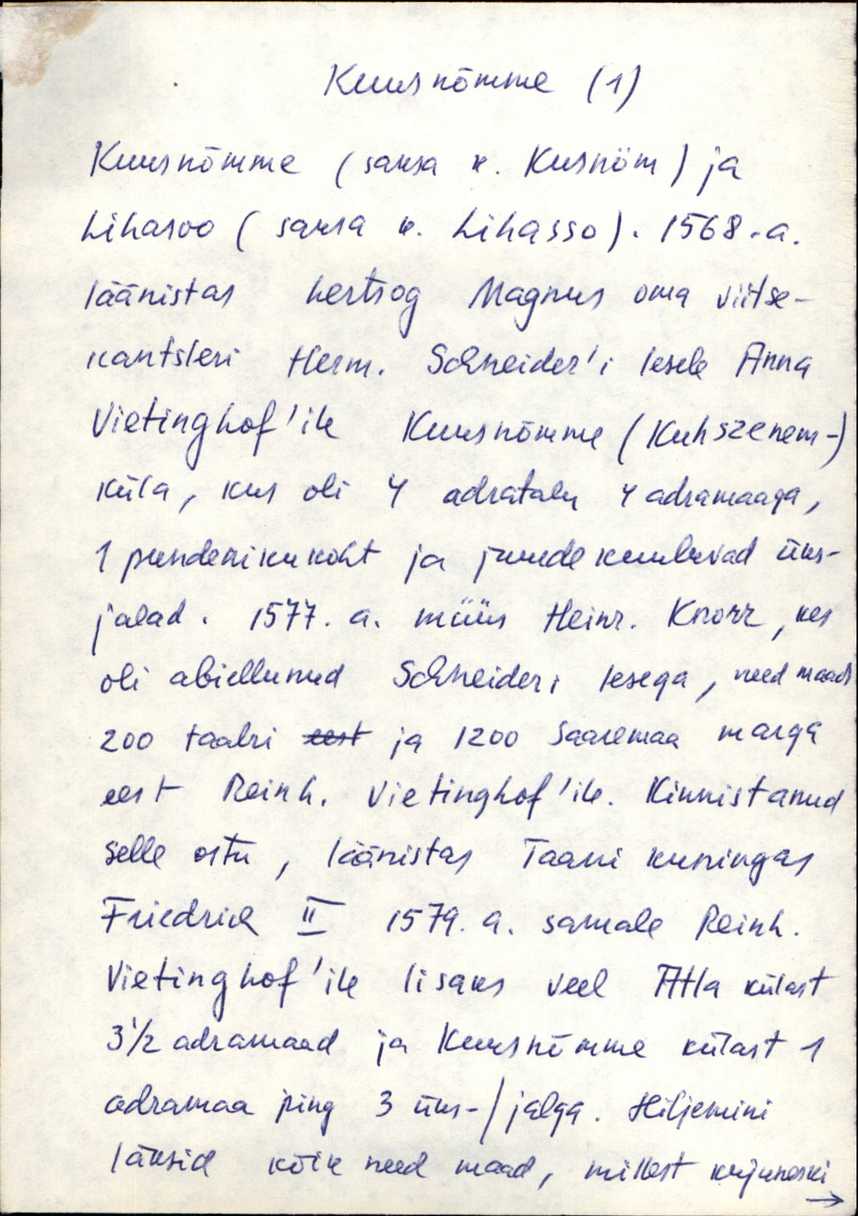 Kuusnõmme (1)
Kuusnõmme (saksa k. Kusnöm) ja
Lihasoo (saksa k. Lihasso). 1568.a.
läänistas hertsog Magnus oma viitse-
kantsleri Herm. Schneider'i lesele Anna
Vietinghof'ile Kuusnõmme (Kuhszenem-)
küla, kus oli 4 adratalu 4 adramaaga,
1 pundeniku koht ja juurde kuuluvad üks-
jalad. 1577. a. müüs Heinr. Knorr, kes
oli abiellunud Schneideri lesega, need maad
200 taalri eest ja 1200 Saaremaa marga
eest Reinh. Vietinghof'ile. Kinnistanud
selle ostu, läänistas Taani kuningas
Friedrich II 1579. a. samale Reinh.
Vietinghof'ile lisaks veel Atla külast
3 1/2 adramaad ja Kuusnõmme külast 1
adramaa ning 3 üks-/jalga. Hiljemini
läksid kõik need maad, millest kujuneski
→